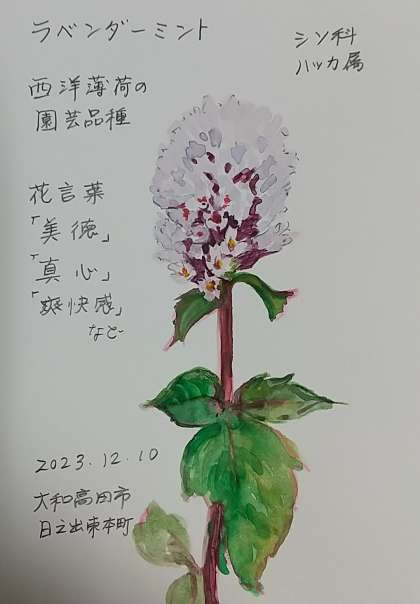 ラベンダーミント
シソ科
ハッカ属
西洋薄荷の
園芸品種
花言葉
「美徳」
「真心」
「爽快感」
など
2023.12.10
大和高田市
日之出東本町